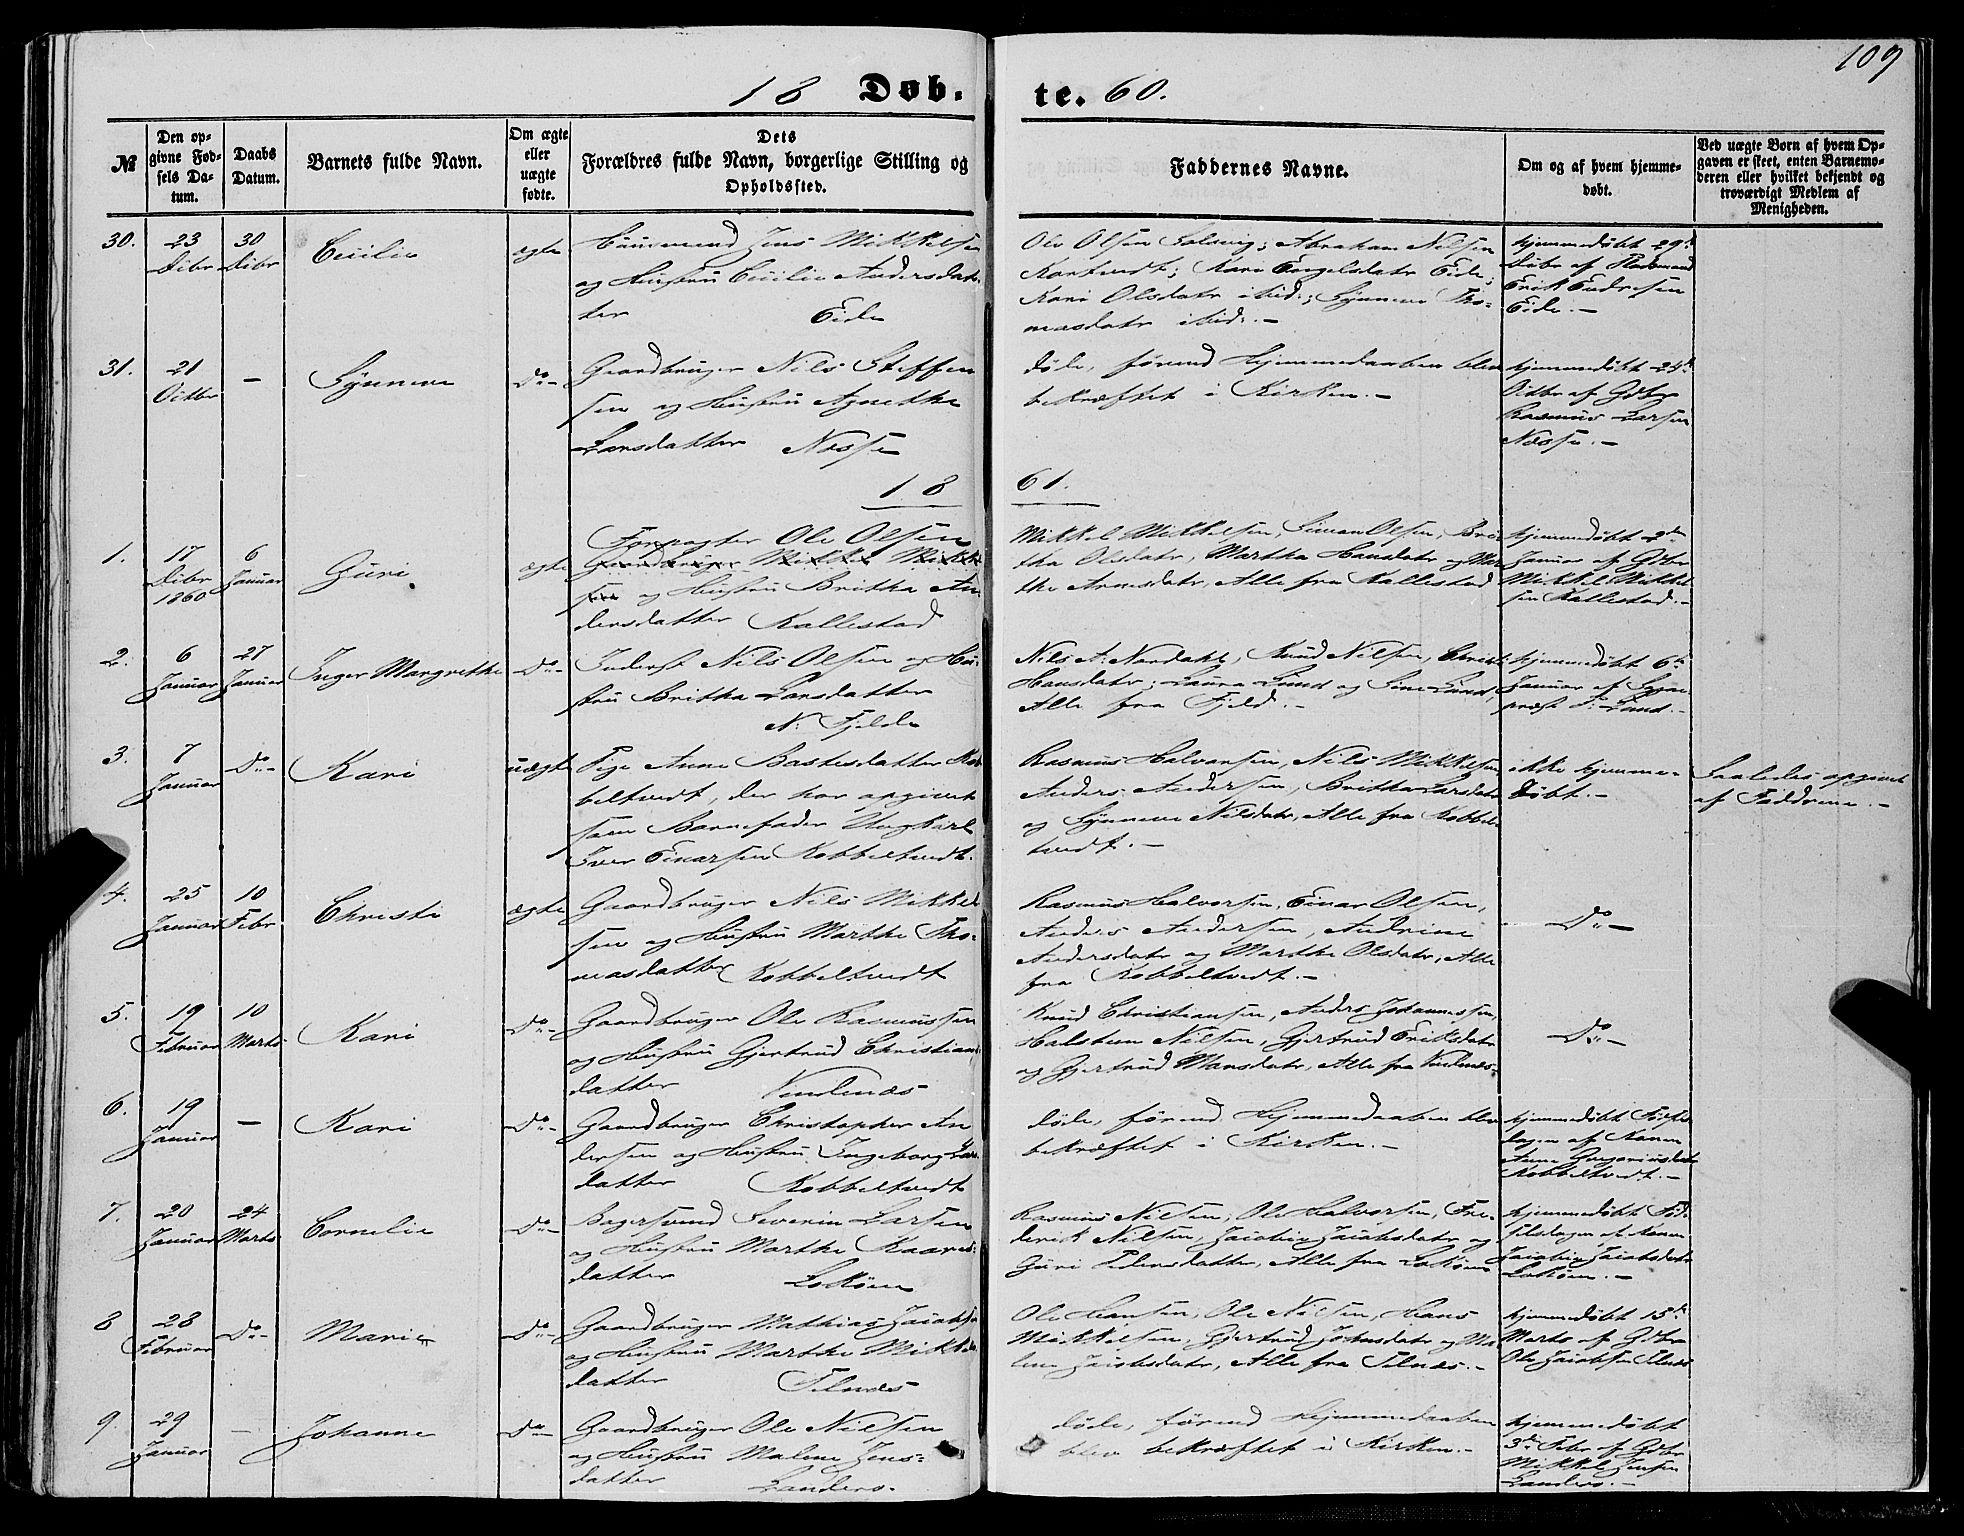 109
18 Døb.
te. 60.
№
Den op-
givne Fød-
sels Da-
tum.
Daabs
Datum.
Barnets fulde Navn.
Om ægte
eller
uægte
fødte.
Dets
Forældres fulde Navn, borgerlige Stilling og
Opholdssted.
Faddernes Navne.
Om og af hvem hjemme-
døbt.
Ved uægte Børn af hvem Op-
gaven er skeet, enten Barnemo-
deren eller hvilket bekjendt og
troværdigt Medlem af
Menigheden.
30.
23
Dcbr
30
Dcbr
Cecilie
ægte
Jens Mikkelsen
og Hustru Cecilie Andersdat-
ter Eide
Ole Olsen Solsvig; Abraham Nilsen
Kartvedt; Kari Engelsdatr Eide;
Kari Olsdatr ibid.; Synneve Tho-
masdatr ibid:-
hjemmedøbt 29de
Dcbr af
Erik Endresen
Eide.-
31.
21
Octbr
-
Synneve
Do-
Gaardbruger Nils Steffen
sen og Hustru Agnethe
Larsdatter Næsse
døde, førend Hjemmedaaben blev
bekræftet i Kirken.-
hjemmedøbt 24de
Octbr af Gdbr
Rasmus Larsen
Næsse.-
18
61.
1.
17
Dcbr
1860
6
Januar
Guri
ægte
Forpagter Ole Olsen
Gaardbruger Mikkel Mikkel
sen og Hustru Britha An-
dersdatter Kallestad
Mikkel Mikkelsen, Simon Olsen, Bri-
tha Olsdatr, Martha Hansdatr og Mar
the Arnesdatr, Alle fra Kallestad
hjemmedøbt 2den
Januar af Gdbr
Mikkel Mikkel
sen Kallestad.-
2.
6
Januar
27
Januar
Inger Margrethe
Do-
Inderst Nils Olsen og Hu-
stru Britha Larsdatter
N. Fjelde
Nils A. Nordahl, Knud Nilsen, Christi
Hansdatr, Laura Lund og Sine Lund,
Alle fra Fjeld.-
hjemmedøbt 6te
Januar af Sogne
præst Lund.-
3.
7
Januar
Do-
Kari
uægte
Pige Anne Bastesdatter Kob
beltvedt, der har opgivet
som Barnefader Ungkarl
Iver Einarsen Kobbeltvedt.
Rasmus Halvorsen, Nils Mikkelsen,
Anders Andersen, Britha Larsdatr
og Synneve Nilsdatr, Alle fra Kobbel
tvedt.-
ikke hjemme-
døbt.-
Saaledes opgivet
af Faddrene.-
4.
25
Januar
10
Febr
Christi
ægte
Gaardbruger Nils Mikkel
sen og Hustru Marthe Tho-
masdatter Kobbeltvedt
Rasmus Halvorsen, Einar Olsen,
Anders Andersen, Andrine
Andersdatr og Marthe Olsdatr, Alle
fra Kobbeltvedt.-
Do-
5.
19
Februar
10
Marts
Kari
Do-
Gaardbruger Ole Rasmussen
og Hustru Gjertrud Christians
datter Vindenæs
Knud Christiansen, Anders Johannessen,
Halsteen Nilsen, Gjertrud Eriksdatr
og Gjertrud Monsdatr, Alle fra Vindenæs-
Do-
6.
19
Januar
-
Kari
Do-
Gaardbruger Christopher An
dersen og Hustru Ingeborg Lars
datter Kobbeltvedt
døde, førend Hjemmedaaben blev
bekræftet i Kirken.-
hjemmedøbt Fødsels
dagen af Konen
Anne Gregoriusdatr
Kobbeltvedt.-
7.
20
Januar
24
Marts
Cornelie
Do-
Bogersvend Severin Larsen
og Hustru Marthe Kaares-
datter Lokøen
Rasmus Nilsen, Ole Halvorsen, Fre-
derik Nilsen, Jacobine Jacobsdatr og
Guri Pedersdatter, Alle fra Lokøen
hjemmedøbt Fød-
selsdagen af Konen
Jacobine Jacobsdatr
Lokøen.-
8
28
Februar
Do-
Marie
Do-
Gaardbruger Mathias Jacobsen
og Hustru Marthe Mikkels
datter Telnæs
Ole Hansen, Ole Nilsen, Hans
Mikkelsen, Gjertrud Johnsdatr og Ma
lene Jacobsdatr, Alle fra Telnæs.-
hjemmedøbt 15de
Marts af Gdbr
Ole Jacobsen Telnæs
9.
29
Januar
-
Johanne
Do-
Gaardbruger Ole Nilsen
og Hustru Malene Jens-
datter Landero.
døde, førend Hjemmedaaben
blev bekræftet i Kirken.-
hjemmedøbt
3de Febr af Gdbr
Mikkel Jensen
Landero.-